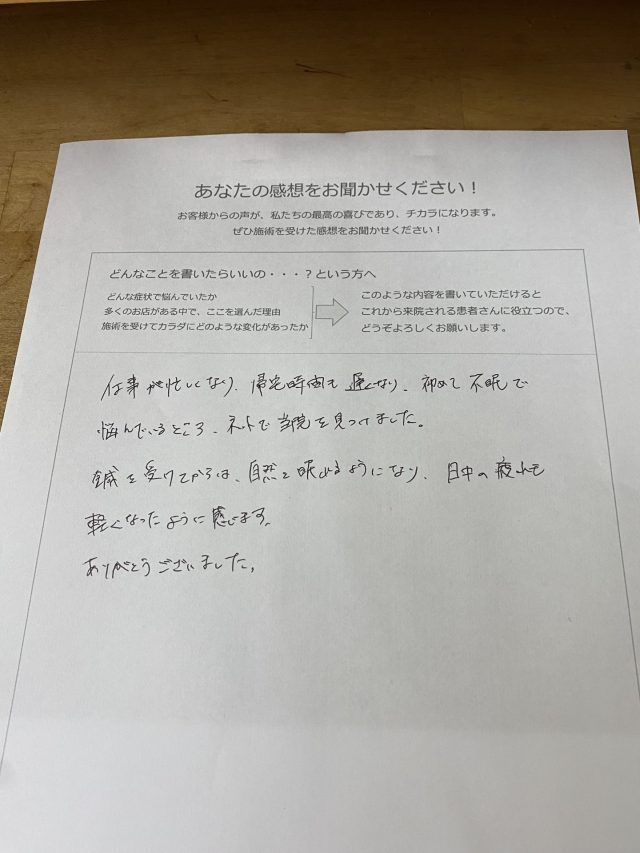 あなたの感想をお聞かせください！
お客様からの声が、私たちの最高の喜びであり、チカラになります。
ぜひ施術を受けた感想をお聞かせください！
どんなことを書いたらいいの・・・？という方へ
どんな症状で悩んでいたか
多くのお店がある中で、ここを選んだ理由
施術を受けてカラダにどのような変化があったか
このような内容を書いていただけると
これから来院される患者さんに役立つので、
どうぞよろしくお願いします。
仕事が忙しくなり、帰宅時間も遅くなり、初めて不眠で
悩んでいるところ、ネットで当院を見つけました。
鍼を受けてからは、自然と眠れるようになり、日中の疲れも
軽くなったように感じます。
ありがとうございました。